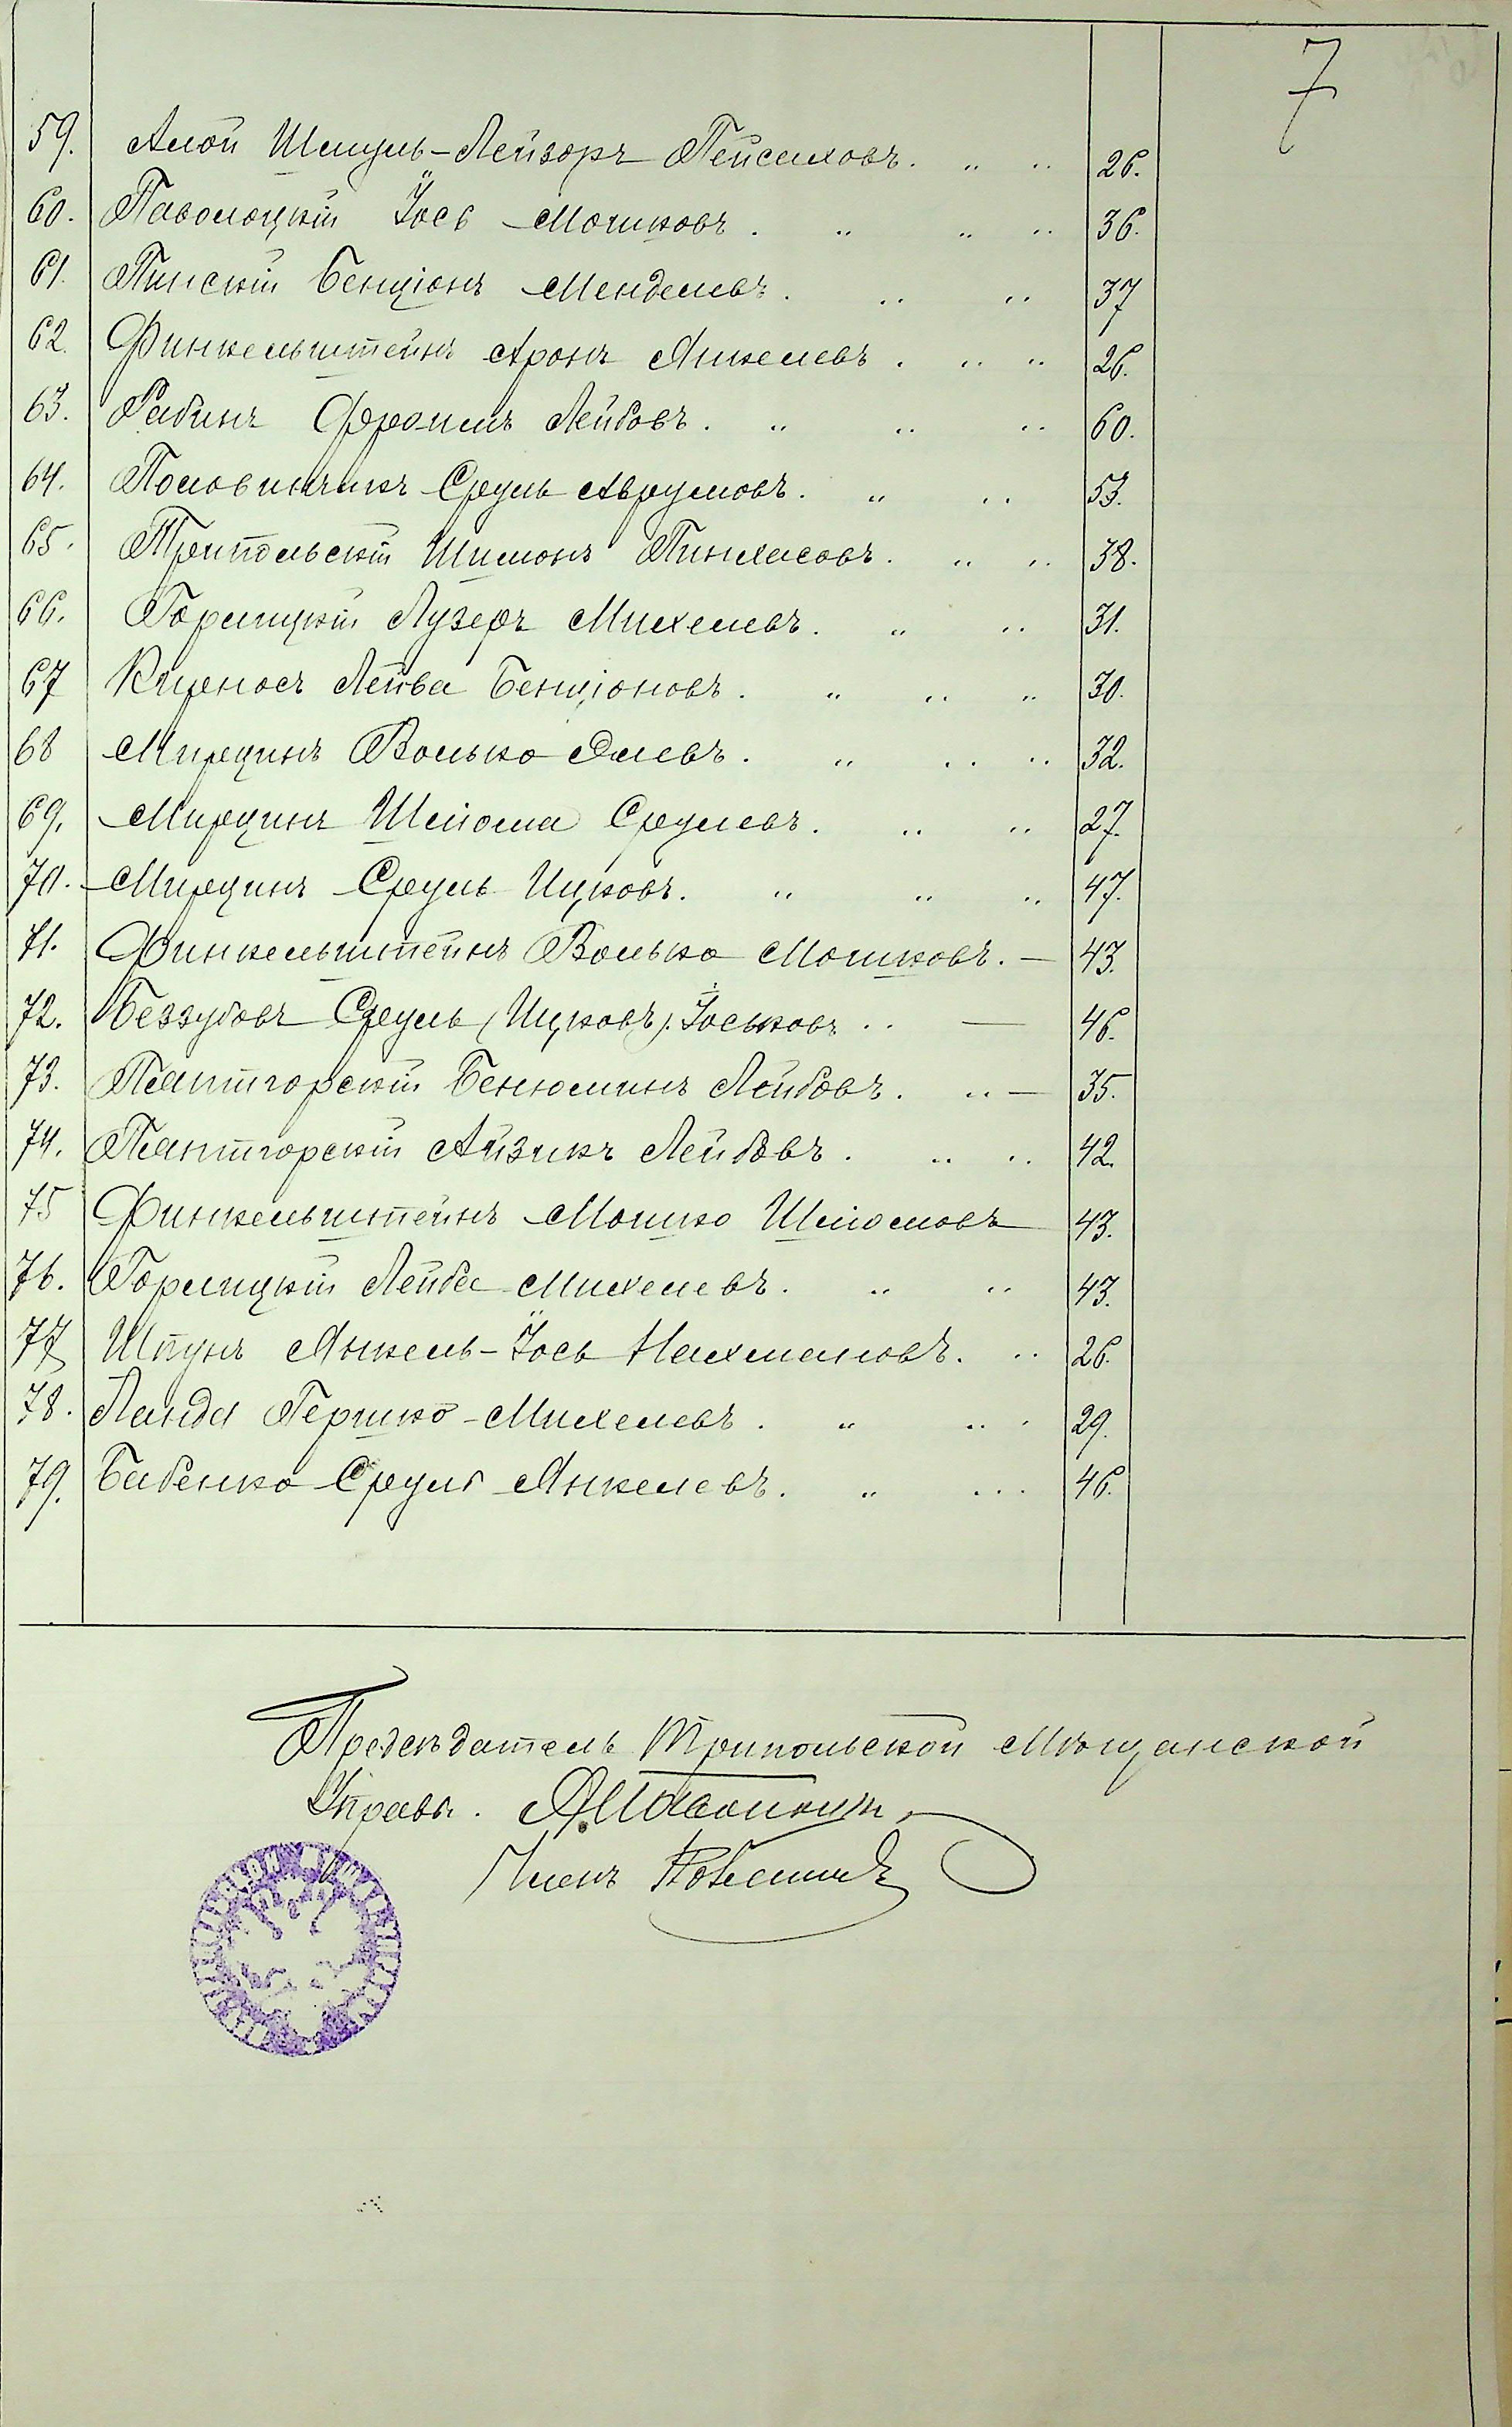 7
59. Алой Шмуль-Лейзоръ Пейсаховъ. „ „ 26.
60. Паволоцкій Іось Мошковъ. „ „ „ 36.
61. Пинскій Бенціонъ Менделевъ. „ „ 37
62. Финкельштейнъ Аронъ Янкелевъ. „ „ 26.
63. Рабинъ Фроимъ Лейбовъ. „ „ „ 60.
64. Половинчикъ Сруль Аврумовъ. „ „ 53.
65. Трипольскій Шимонъ Пинхасовъ. „ „ 38.
66. Горлицкій Лузеръ Михелевъ. „ „ 31.
67 Кцыносъ Лейба Бенціоновъ. „ „ „ 30.
68 Мирецинъ Волько Элевъ. „ „ „ 32.
69. Мирецинъ Шлйома Срулевъ. „ „ 27.
70. Мирецинъ Сруль Ицковъ. „ „ „ 47.
71. Финкельштейнъ Волько Мошковъ. — 43.
72. Беззубовъ Сруль (Ицковъ). Іоськовъ .. — 46.
73. Пятигорскій Бенюминъ Лейбовъ. „ — 35.
74. Пятигорскій Айзикъ Лейбовъ. „ „ 42.
75 Финкельштейнъ Мошко Шлйомовъ 43.
76. Горлицкій Лейба Михелевъ. „ „ 43.
77 Шпунъ Янкель-Іось Нахмановъ. „ 26.
78. Ланда Гершко-Михелевъ. „ „ 29.
79. Бабенко Сруль Янкелевъ. „ ... 46.
Предсѣдатель Трипольской Мѣщанской
Управы.
Членъ